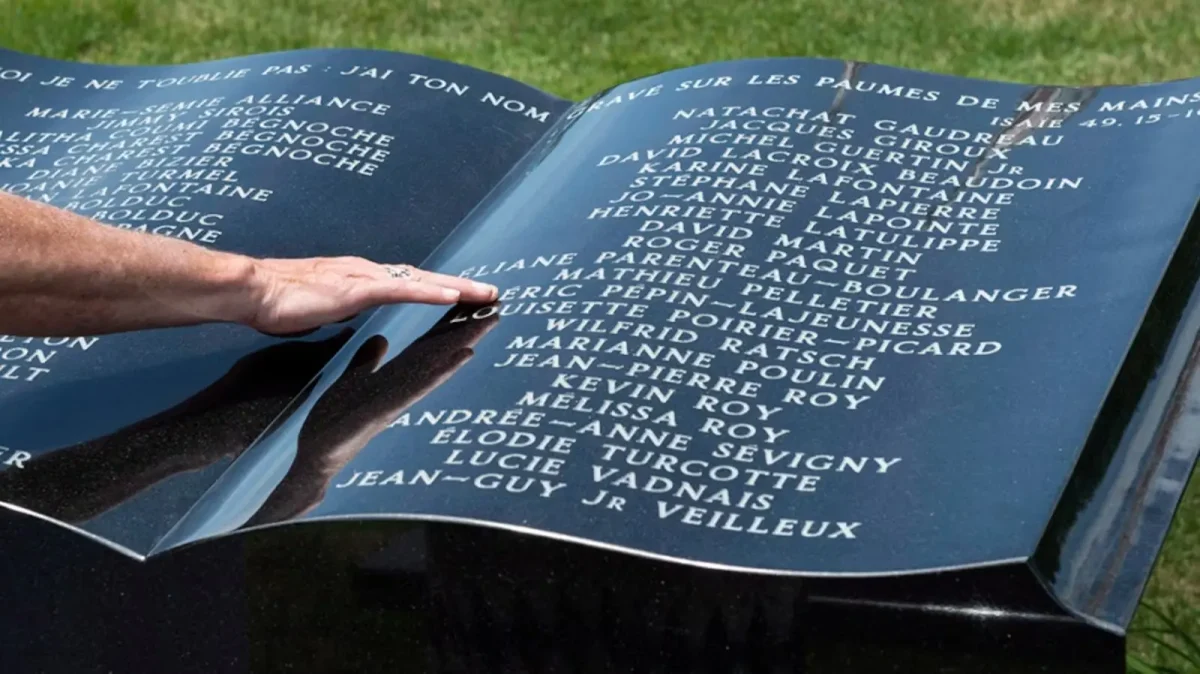 OI JE NE T'OUBLIE PAS : J'AI TON NOM
MARIE~SEMIE ALLIANCE
JIMMY SIROIS
ALITHA COUMI BÉGNOCHE
BÉGNOCHE
CHAREST BÉGNOCHE
BIZIER
DIANE TURMEL
LAFONTAINE
BOLDUC
BOLDUC
GRAVÉ SUR LES PAUMES DE MES MAINS
ISAÏE 49, 15-1
NATACHAT GAUDREAU
JACQUES GIROUX
MICHEL GUERTIN JR
DAVID LACROIX BEAUDOIN
KARINE LAFONTAINE
STÉPHANE LAPIERRE
JO~ANNIE LAPOINTE
HENRIETTE LATULIPPE
DAVID MARTIN
ROGER PAQUET
ÉLIANE PARENTEAU~BOULANGER
MATHIEU PELLETIER
ÉRIC PÉPIN~LAJEUNESSE
LOUISETTE POIRIER~PICARD
WILFRID RATSCH
MARIANNE POULIN
JEAN~PIERRE ROY
KEVIN ROY
MÉLISSA ROY
ANDRÉE~ANNE SÉVIGNY
ÉLODIE TURCOTTE
LUCIE VADNAIS
JEAN~GUY JR VEILLEUX